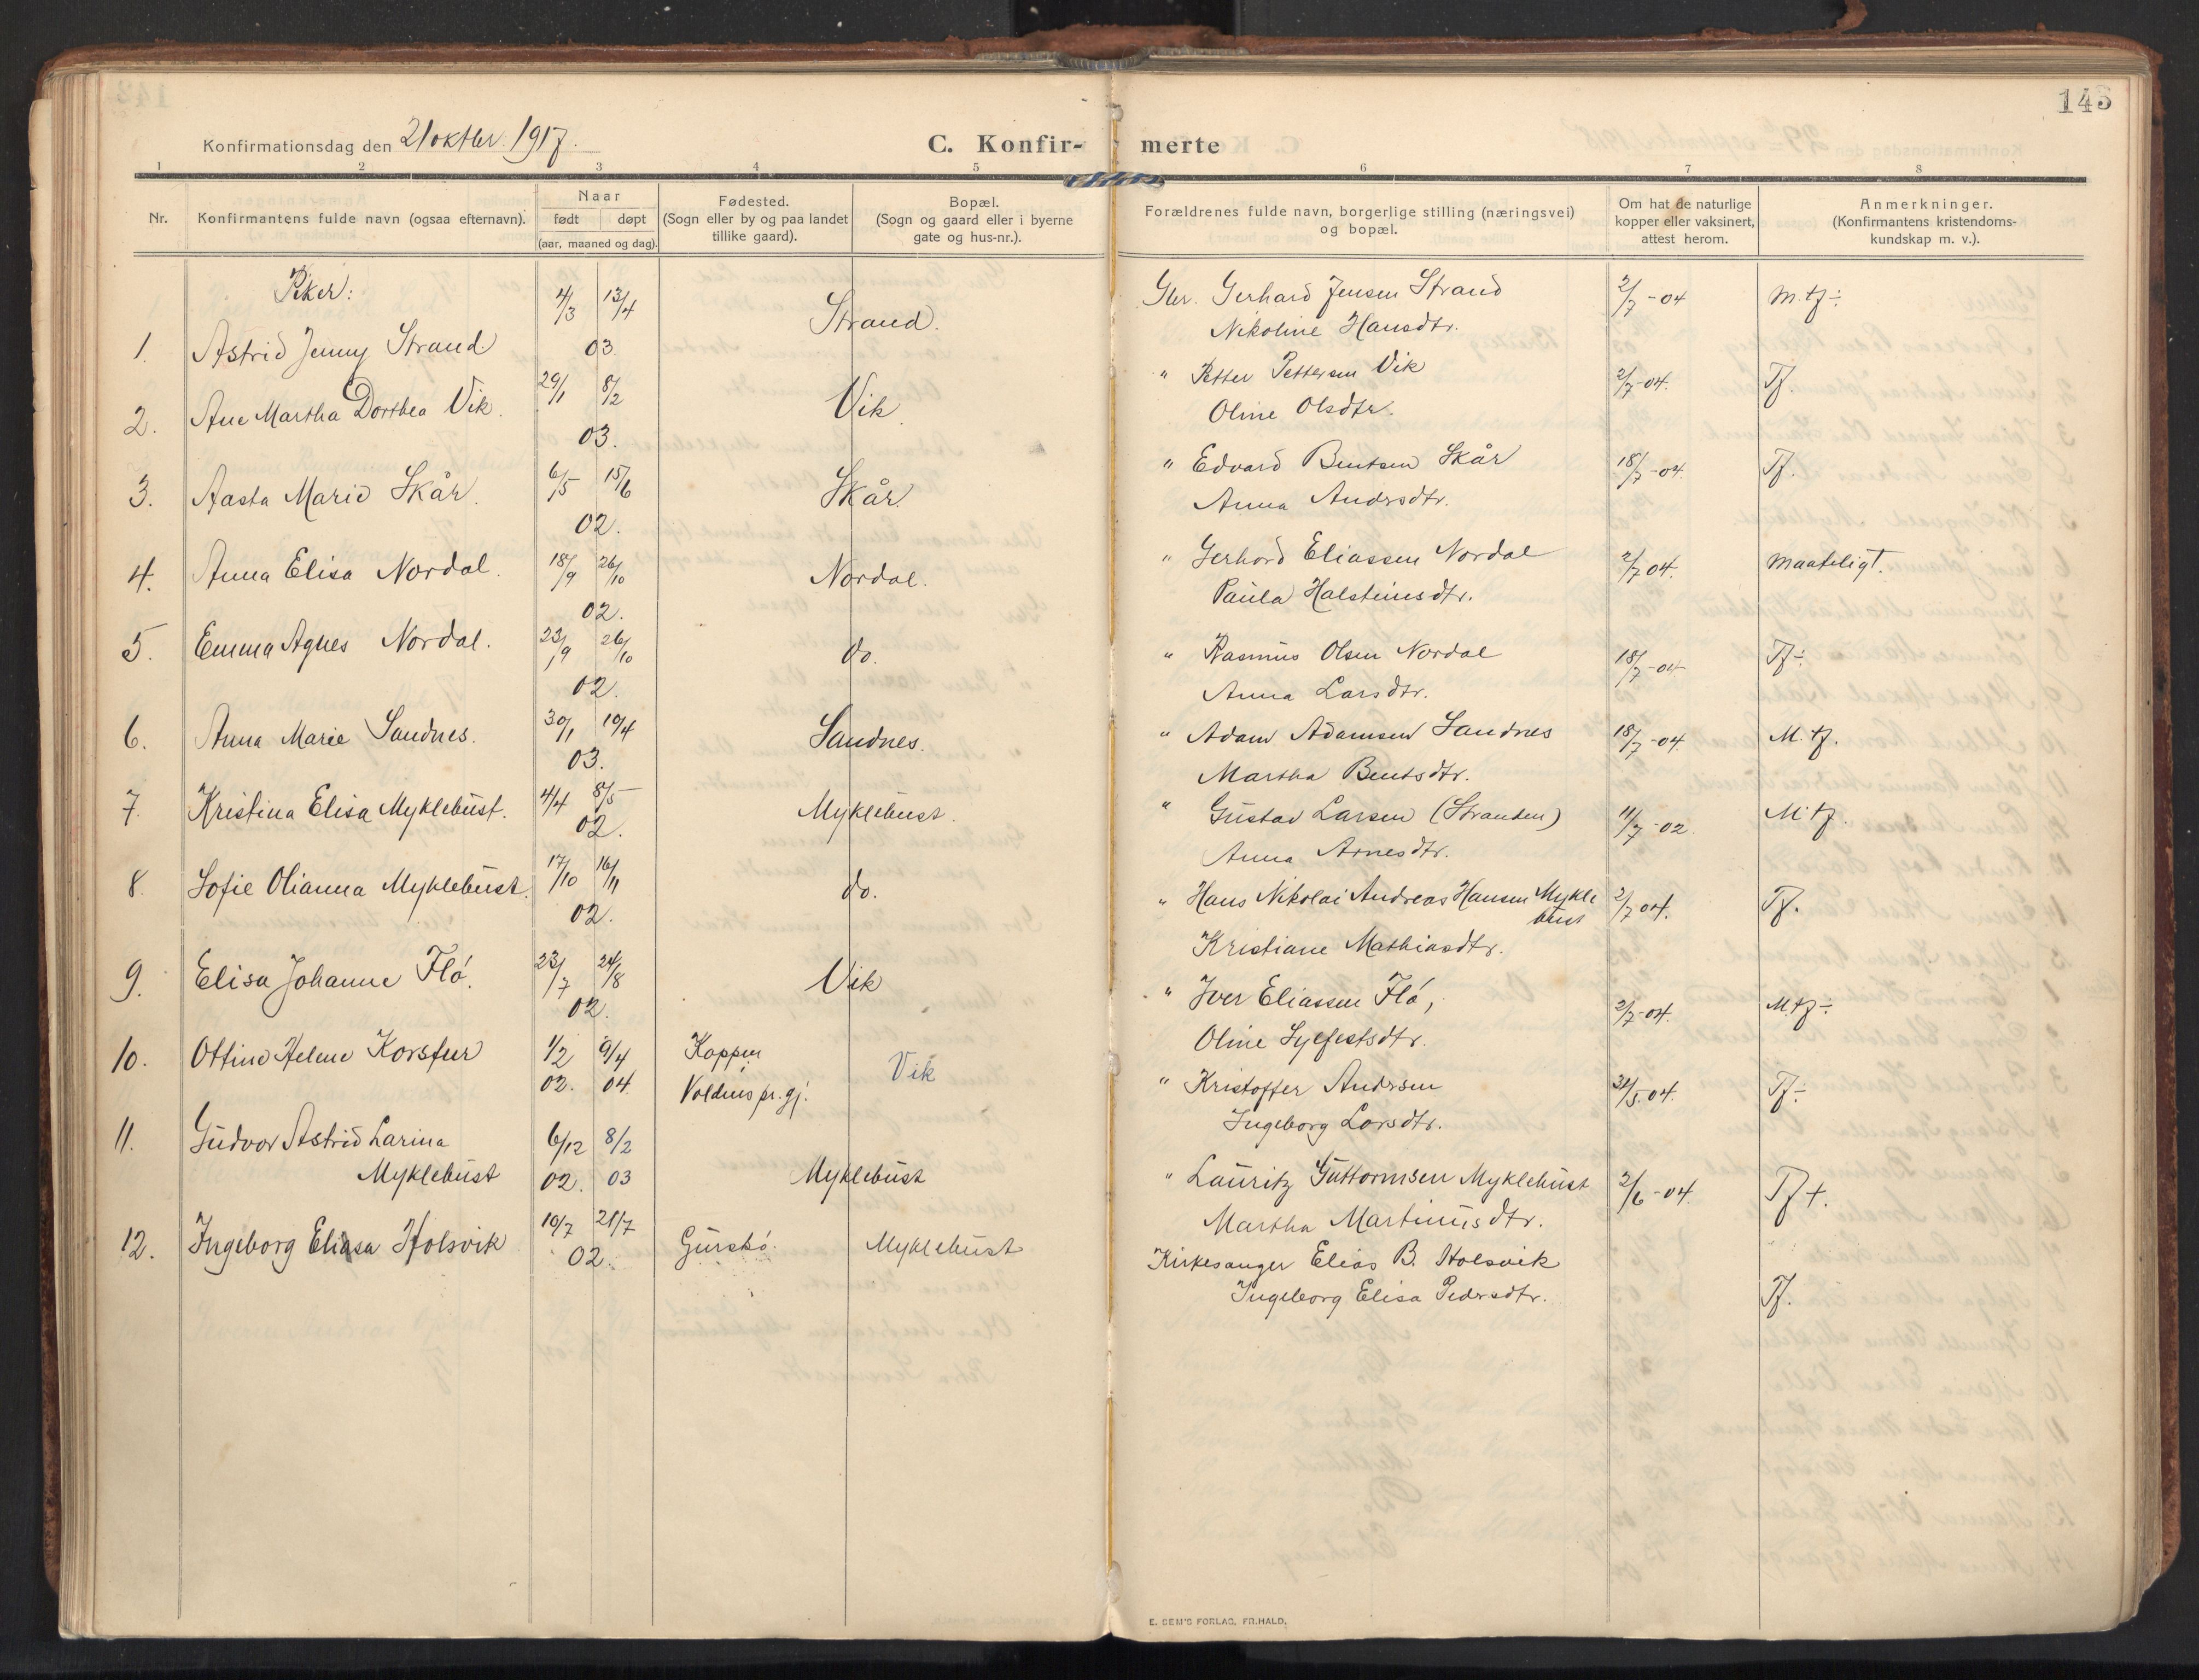 143
Konfirmationsdag den 21 oktbr. 1917.
C. Konfir- merte
1 2 3 4 5 6 7 8
Nr.
Konfirmantens fulde navn (ogsaa efternavn).
Naar
født døpt
(aar, maaned og dag).
Fødested.
(Sogn eller by og paa landet
tillike gaard).
Bopæl.
(Sogn og gaard eller i byerne
gate og hus-nr.).
Forældrenes fulde navn, borgerlige stilling (næringsvei)
og bopæl.
Om hat de naturlige
kopper eller vaksinert,
attest herom.
Anmerkninger.
(Konfirmantens kristendoms-
kundskap m. v.).
Piker:
1. Astrid Jenny Strand 4/3 13/4 03. Strand. Gbr. Gerhard Jensen Strand 2/7-04 M.tf÷
Nikoline Hansdtr.
2. Ane Martha Dorthea Vik. 29/1 8/2 03. Vik. " Petter Pettersen Vik 2/7-04. Tf.
Oline Olsdtr.
3. Aasta Marie Skår. 6/5 15/6 02. Skår. " Edvard Bentsen Skår 18/7-04. Tf.
Anna Andrsdtr.
4. Anna Elisa Nordal. 18/9 26/10 02. Nordal. " Gerhard Eliassen Nordal 2/7 04. Maateligt.
Paula Halsteinsdtr.
5. Emma Agnes Nordal. 23/9 26/10 02. do. " Rasmus Olsen Nordal 18/7-04 Tf÷
Anna Larsdtr.
6. Anna Marie Sandnes. 30/1 19/4 03. Sandnes. " Adam Adamsen Sandnes 18/7-04. M.tf.
Martha Bentsdtr.
7. Kristina Elisa Myklebust. 4/4 8/5 02. Myklebust. " Gustav Larsen (Stranden) 11/7-02. M.tf.
Anna Arnesdtr.
8. Sofie Olianna Myklebust. 17/10 16/11 02. do. " Hans Nikolai Andreas Hansen Mykle 2/7 04. Tf.
bust
Kristiane Mathiasdtr.
9. Elisa Johanne Flø. 23/7 24/8 02. Vik " Iver Eliassen Flø, 2/7-04. M.tf÷
Oline Sylfestsdtr.
10. Ottine Helene Korsfur 1/2 9/4 Koppen Vik " Kristoffer Andrsen 31/5.04. Tf÷
02. 04. Voldens pr.gj.
Ingeborg Larsdtr.
11. Gudvor Astrid Larina 6/12 8/2
Myklebust 02. 03 Myklebust " Lauritz Guttormsen Myklebust 2/6-04. Tf+.
Martha Martinusdtr.
12. Ingeborg Eliasa Holsvik 10/7 21/7 02. Gurskø. Myklebust Kirkesanger Elias B. Holsvik
Ingeborg Elisa Pedersdtr. Tf.
E. SEM'S FORLAG, FR.HALD.